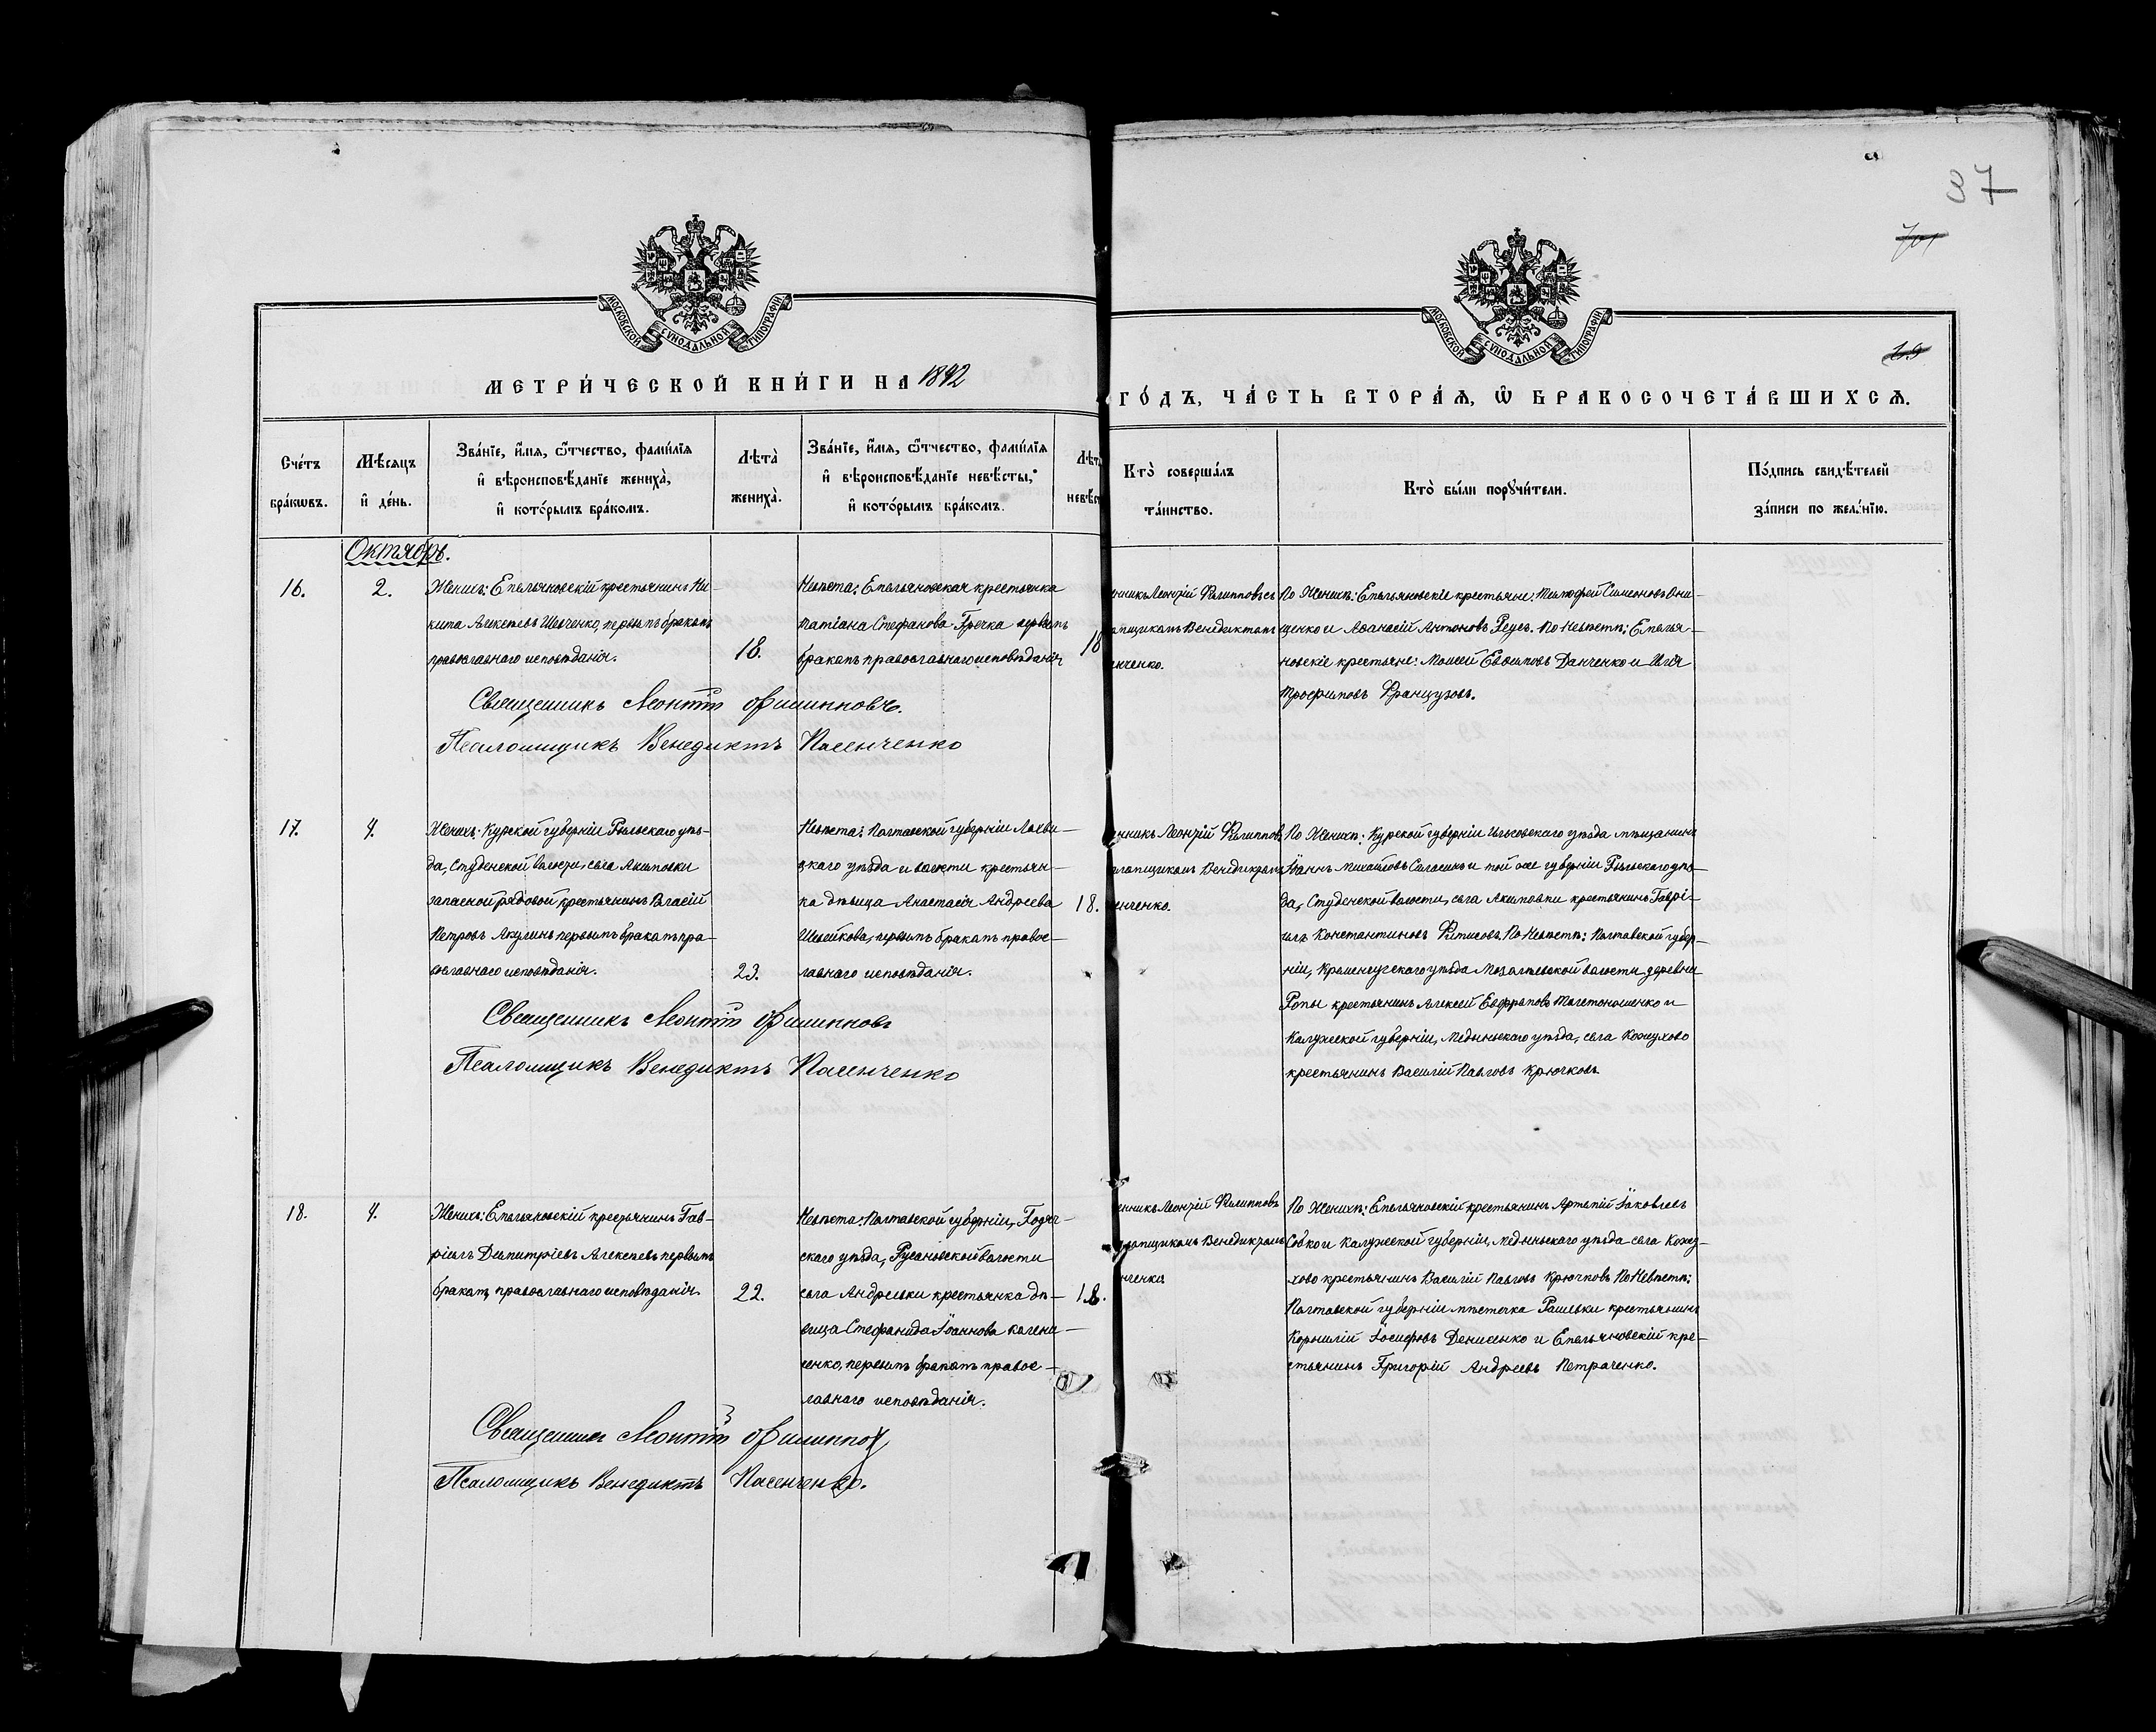 37
МОСКОВСКОЙ СѴНОДАЛЬНОЙ ТИПОГРАФІИ
МОСКОВСКОЙ СѴНОДАЛЬНОЙ ТИПОГРАФІИ
МЕТРИ́ЧЕСКОЙ КНИ́ГИ НА 1892
ГО́ДЪ, ЧА́СТЬ ВТОРА́Ѧ, Ѡ҆ БРАКОСОЧЕТА́ВШИХСѦ.
Сче́тъ
бра́кѡвъ.
Мѣ́сяцъ
и҆ де́нь.
Зва́нїе, и҆́мѧ, ѻ҆́тчество, фами́лїѧ
и҆ вѣроисповѣ́данїе жениха̀,
и҆ кото́рымъ бра́комъ.
Лѣта̀
жениха̀.
Зва́нїе, и҆́мѧ, ѻ҆́тчество, фами́лїѧ
и҆ вѣроисповѣ́данїе невѣ́сты,
и҆ кото́рымъ бра́комъ.
Лѣт
невѣ́с
Кто̀ соверша́лъ
та́инство.
Кто̀ бы́ли порꙋчи́тели.
По́дпись свидѣ́телей
за́писи по жела́нїю.
Октябрь.
16.
2.
Женихъ: Емельяновскій крестьянинъ Ни-
кита Алексѣевъ Шевченко, первымъ бракомъ
православнаго исповѣданія.
18.
Невѣста: Емельяновская крестьянка
Татіана Стефанова Гречка первымъ
бракомъ православнаго исповѣданія
18
нникъ Леонтій Филипповъ съ
мщикомъ Венедиктомъ
енченко.
По Женихѣ: Емельяновскіе крестьяне: Тимофей Симеоновъ Они-
щенко и Аѳанасій Антоновъ Реусъ. По Невѣстѣ: Емелья-
новскіе крестьяне: Моисей Евѳимовъ Данченко и Илія
Трофимовъ Французовъ.
Священникъ Леонтій Филипповъ.
Псаломщикъ Венедиктъ Пасенченко
17.
4.
Женихъ: Курской губерніи Рыльскаго уѣз-
да, Студенской волости, села Акимовки
запасной рядовой крестьянинъ Власій
Петровъ Акулинъ первымъ бракомъ пра-
вославнаго исповѣданія.
23.
Невѣста: Полтавской губерніи Лохви-
цкаго уѣзда и волости крестьян-
ка дѣвица Анастасія Андреева
Шевейкова, первымъ бракомъ правос-
лавнаго исповѣданія.
18.
нникъ Леонтій Филипповъ
ломщикомъ Венедиктомъ
енченко.
По Женихѣ: Курской губерніи Льговскаго уѣзда мѣщанинъ
Іоаннъ Михайловъ Саласинъ и той же губерніи Рыльскаго уѣз-
да, Студенской волости, села Акимовки крестьянинъ Гаврі-
илъ Константиновъ Фитисовъ. По Невѣстѣ: Полтавской губер-
ніи, Кременчугскаго уѣзда Мозолѣевской волости деревни
Ропы крестьянинъ Алексей Евфрамовъ Толстоношенко и
Калужской губерніи, Медыньскаго уѣзда, села Кожухово
крестьянинъ Василій Павловъ Крючковъ.
Священникъ Леонтій Филипповъ
Псаломщикъ Венедиктъ Пасенченко
18.
4.
Женихъ: Емельяновскій крестьянинъ Гав-
ріилъ Димитріевъ Алексѣевъ первымъ
бракомъ, православнаго исповѣданія.
22.
Невѣста: Полтавской губерніи, Гадяч-
скаго уѣзда, Русановской волости
села Андреевки крестьянка дѣ-
вица Стефанида Іоаннова Калени-
ченко, первымъ бракомъ правос-
лавнаго исповѣданія.
18.
нникъ Леонтій Филипповъ
ломщикомъ Венедиктомъ
нченко
По Женихѣ: Емельяновскій крестьянинъ Артемій Іаковлевъ
Совко и Калужской губерніи, Медыньскаго уѣзда села Кожу-
хово крестьянинъ Василій Павловъ Крючковъ По Невѣстѣ:
Полтавской губерніи мѣстечка Рашевки крестьянинъ
Корнилій Іосифовъ Денисенко и Емельяновскій кре-
стьянинъ Григорій Андреевъ Петраченко.
Священникъ Леонтій Филипповъ
Псаломщикъ Венедиктъ Пасенченко.